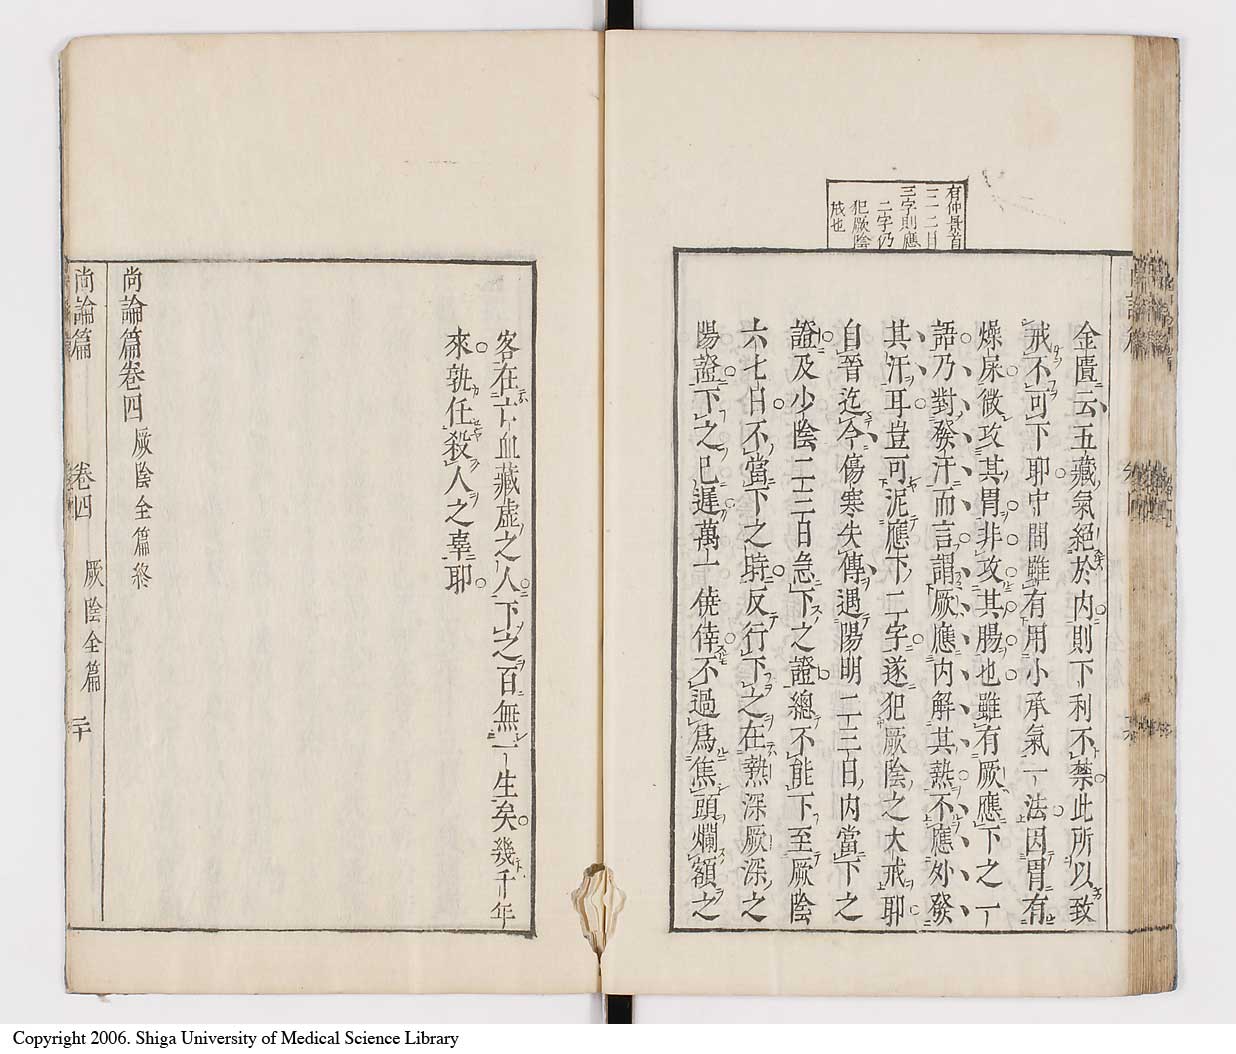 有仲景首
三字則應
二字乃
犯厥陰
戒也
金匱云五藏氣絕於内則下利不禁此所以致
戒不可下耶中間雖有用小承氣一法因胃有
燥屎微攻其胃非攻其腸也雖有厥應下之一
語乃對發汗而言謂厥應内解其熱不應外發
其汗耳豈可泥應下二字遂犯厥陰之大戒耶
自晉迄今傷寒失傳遇陽明二三日内當下之
證及少陰二三日急下之證總不能下至厥陰
六七日不當下之時反行下之在熱深厥深之
陽證下之已遲萬一僥倖不過爲焦頭爛額之
客在亡血藏虛之人下之百無一生矣幾千年
來孰任殺人之辜耶
尚論篇卷四厥陰全篇終
尚論篇 卷四 厥陰全篇 二十
Copyright 2006. Shiga University of Medical Science Library